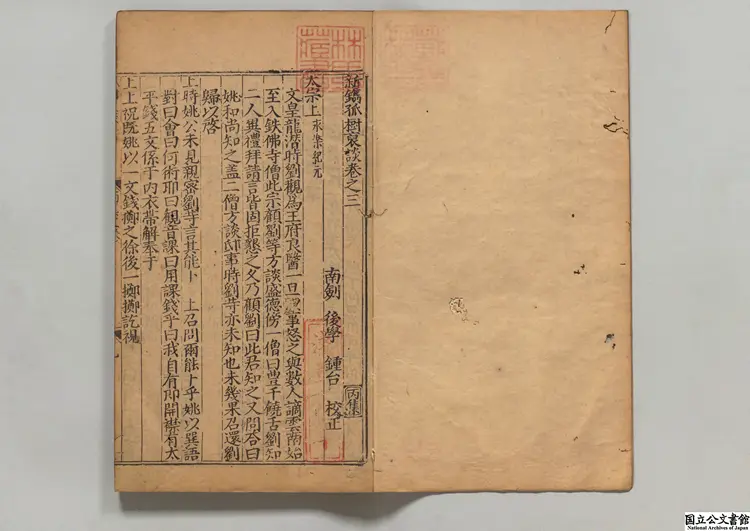 新鐫孤樹裒談卷之三
南劍 後學 鍾台 校正
丙集
太宗上 永樂紀元
文皇龍潛時劉觀為王府良醫一旦以事怒之與數人謫雲南始
至入鉄佛寺僧此宗顧劉等方談盛德傍一僧曰豊千饒舌劉知
二人異禮拜請言皆固拒懇之久乃顧劉曰此君知之又問答曰
姚和尚知之盖二僧方談邸事時劉寺亦未知也未幾果召還劉
歸以啓
上時姚公未見親密劉寺言其能卜 上召問爾能卜乎姚以巽語
對曰會曰何術耶曰觀音課曰用課錢乎曰我自有卽開襟有太
平錢五文係于内衣帶解奉于
上上祝既姚以一文錢擲之徐後一擲擲訖視
国立公文書館
National Archives of Japan